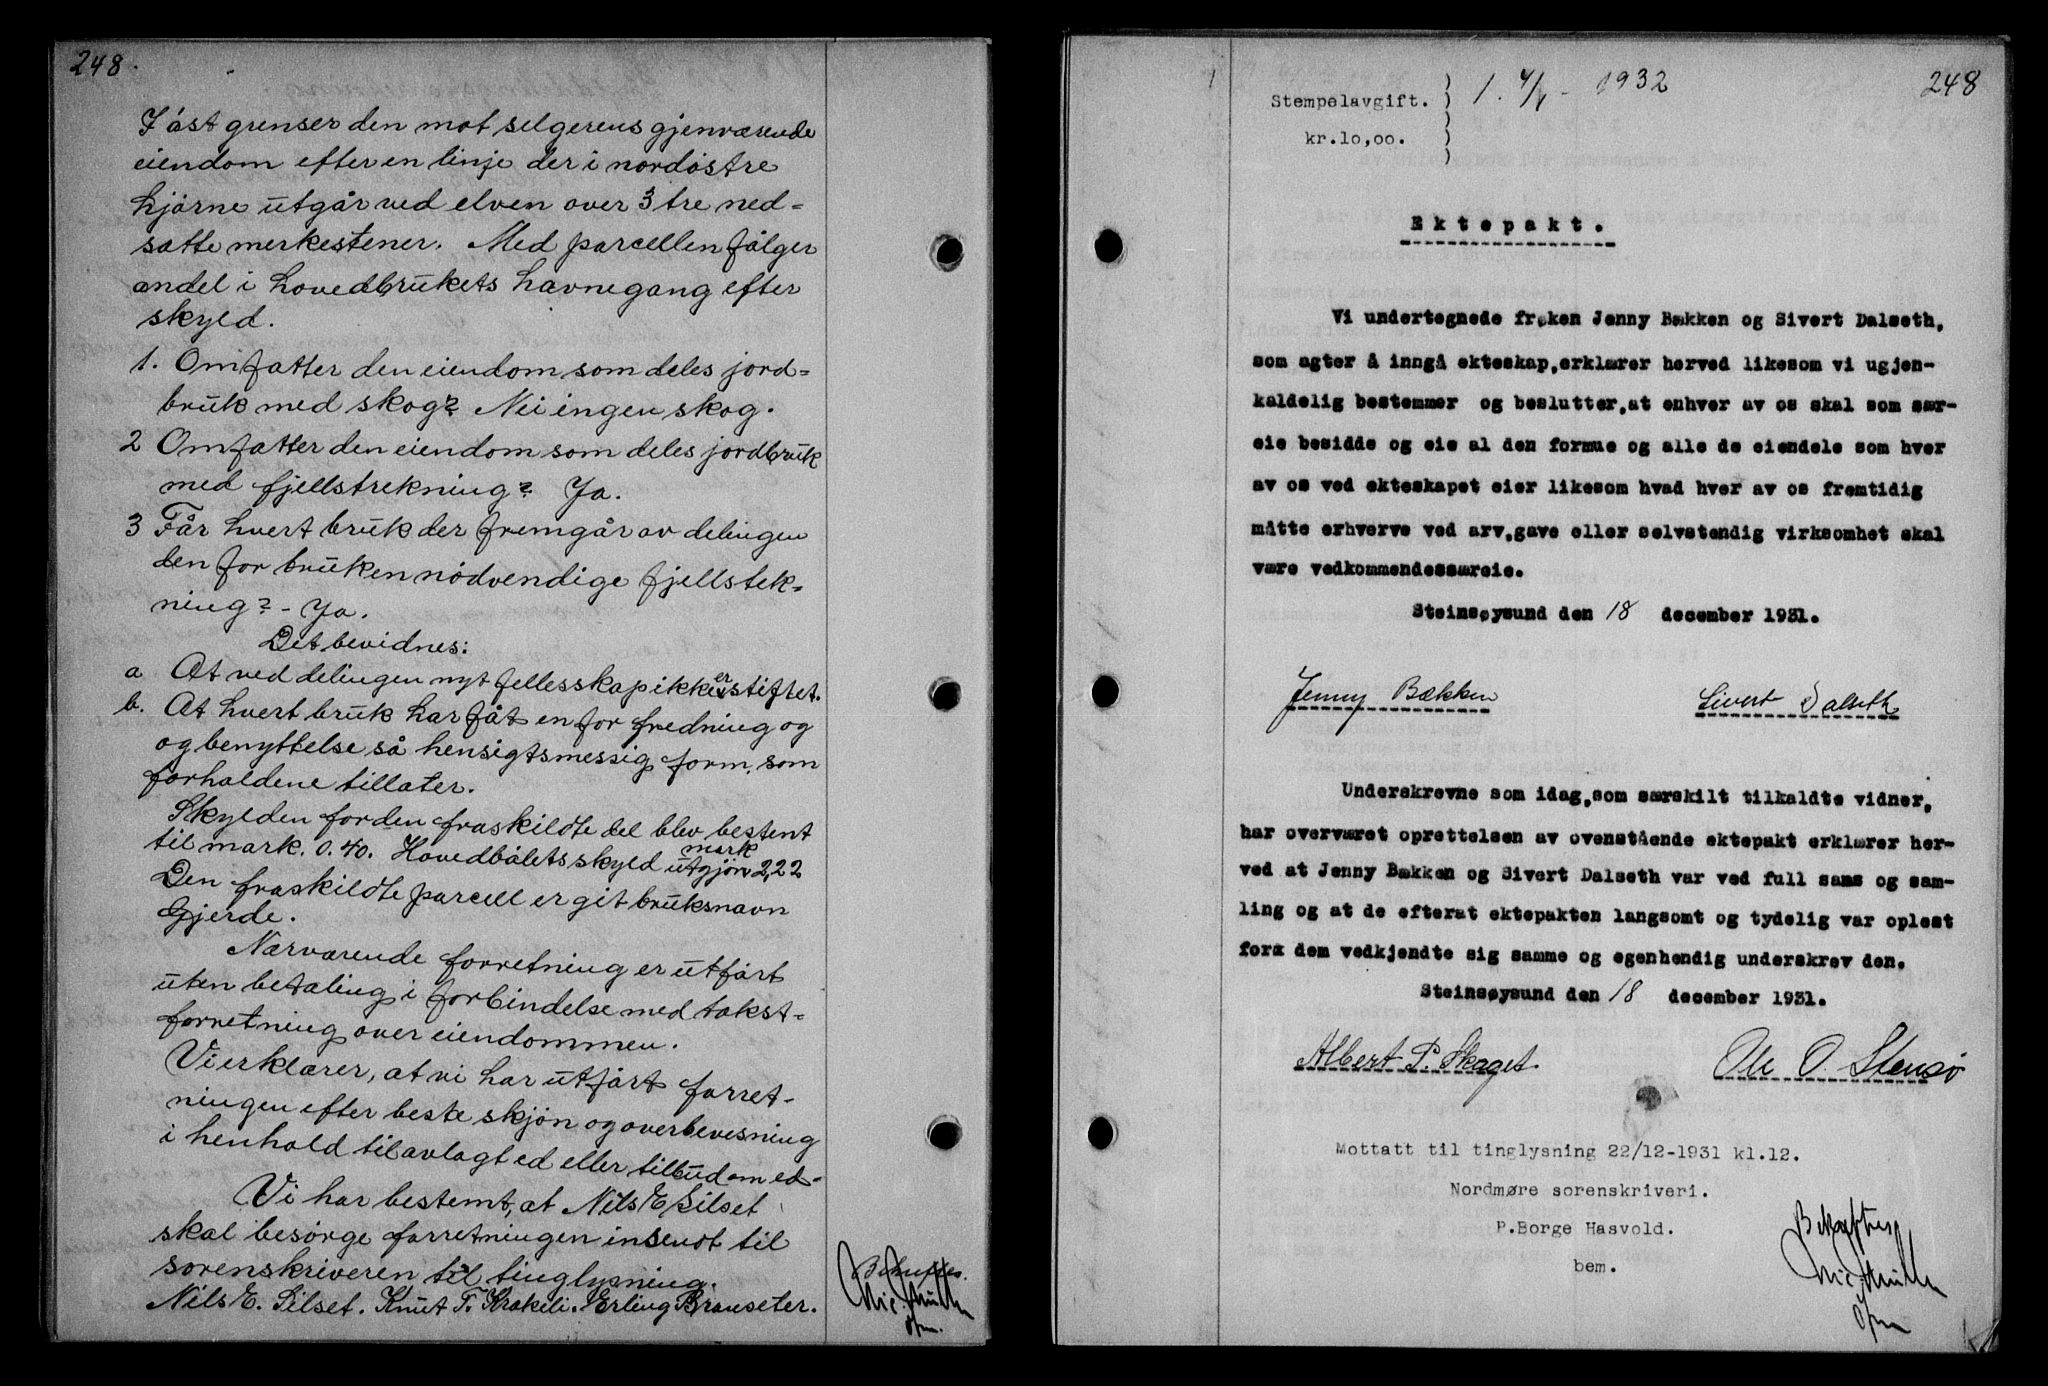 248.
I øst grenser den mot selgerens gjenværende
eiendom efter en linje der i nordøstre
hjørne utgår ved elven over 3 tre ned=
satte merkestener. Med parcellen følger
andel i hovedbrukets havnegang efter
skyld.
1. Omfatter den eiendom som deles jord=
bruk med skog? Nei ingen skog.
2 Omfatter den eiendom som deles jordbruk
med fjellstrekning? Ja.
3 Får hvert bruk der fremgår av delingen
den for bruken nødvendige fjellstek=
ning? - Ja.
Det bevidnes:
a At ved delingen nyt fellesskap ikke er stiftet.
b. At hvert bruk har fåt en for fredning og
og benyttelse så hensigtsmessig form, som
forholdene tillater.
Skylden for den fraskildte del blev bestent
til mark. 0.40. Hovedbølets skyld utgjør mark 2,22
Den fraskildte parcell er git bruksnavn
Gjerde.
Nærværende forretning er utført
uten betaling i forbindelse med takst=
forretning over eiendommen.
Vi erklærer, at vi har utført forret-
ningen efter beste skjøn og overbevisning
i henhold til avlagt ed eller tilbud om ed.
Vi har bestemt, at Nils E Silset
skal besørge forretningen insendt til
sorenskriveren til tinglysning.
Nils E. Silset. Knut T. Krakeli. Erling Branseter.
Bekreftes.
Nic. Müller
ofm.
248
1. 4/1 - 1932
Stempelavgift.
kr.10,00.
Ektepakt.
Vi undertegnede frøken Jenny Bækken og Sivert Dalseth,
som agter å inngå ekteskap,erklærer herved likesom vi ugjen-
kaldelig bestemmer og beslutter,at enhver av os skal som sær-
eie besidde og eie al den formue og alle de eiendele som hver
av os ved ekteskapet eier likesom hvad hver av os fremtidig
måtte erhverve ved arv,gave eller selvstendig virksomhet skal
være vedkommendessæreie.
Steinsøysund den 18 december 1931.
Jenny Bækken Sivert Dalseth
Underskrevne som idag,som særskilt tilkaldte vidner,
har overværet oprettelsen av ovenstående ektepakt erklærer her-
ved at Jenny Bækken og Sivert Dalseth var ved full sans og sam-
ling og at de efterat ektepakten langsomt og tydelig var oplest
forx dem vedkjendte sig samme og egenhendig underskrev den.
Steinsøysund den 18 december 1931.
Albert P. Skaget. Ole O. Stensø
Mottatt til tinglysning 22/12-1931 kl.12.
Nordmøre sorenskriveri.
P.Borge Hasvold.
bem.
Bekreftes
Nic. Müller
ofm